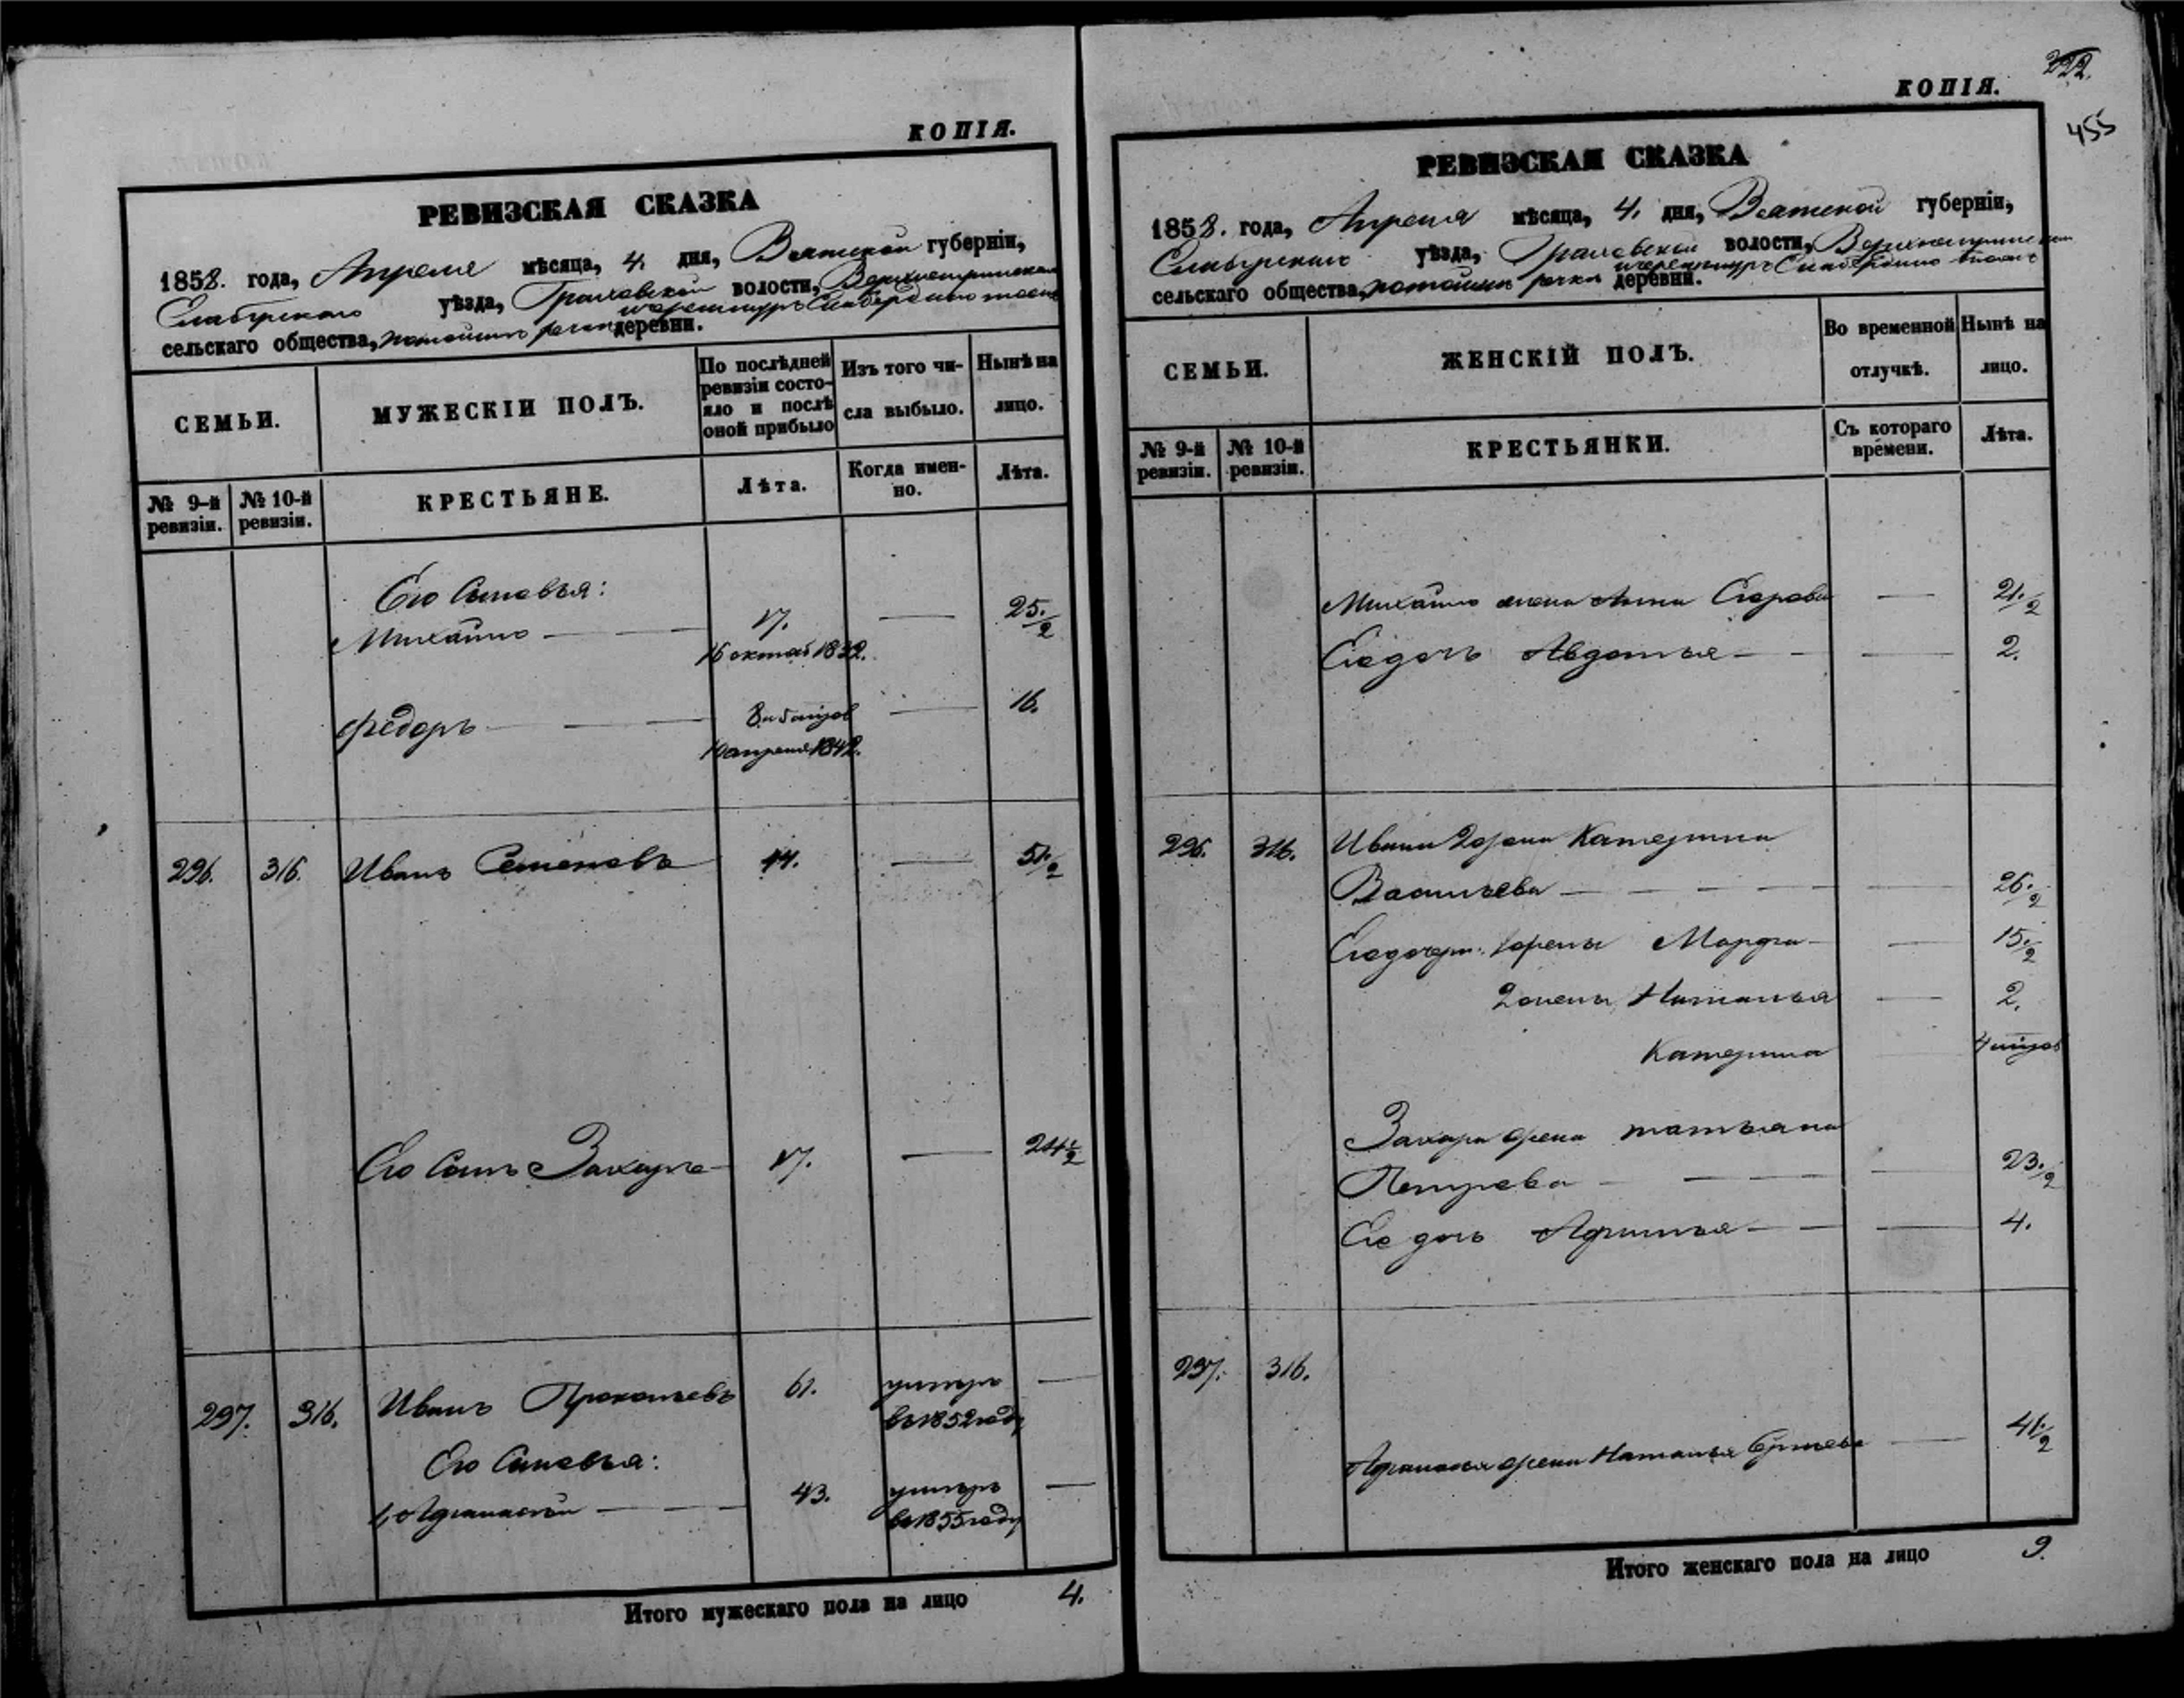 КОПІЯ.
РЕВИЗСКАЯ СКАЗКА
1858. года, Апреля мѣсяца, 4. дня, Вятской губерніи,
Елабугскаго уѣзда, Граховской волости,
сельскаго общества, деревни.
СЕМЬИ.
МУЖЕСКІЙ ПОЛЪ.
По послѣдней ревизіи состояло и послѣ оной прибыло
Изъ того числа выбыло.
Нынѣ на лицо.
№ 9-й ревизіи.
№ 10-й ревизіи.
КРЕСТЬЯНЕ.
Лѣта.
Когда именно.
Лѣта.
Его Сыновья:
Михайло — 17. — 25 1/2
16 октяб 1832.
Федоръ — — 16.
10 апреля 1842.
296. 316. Иванъ Семеновъ 44. — 51 1/2
Его Сынъ Захаръ 17. — 24 1/2
297. 316. Иванъ Прокопьевъ 61. умеръ —
въ 1852 году
Его Сыновья:
1, Афанасій — 43. умеръ —
въ 1855 году
Итого мужескаго пола на лицо 4.
222.
КОПІЯ.
455
РЕВИЗСКАЯ СКАЗКА
1858. года, Апреля мѣсяца, 4. дня, Вятской губерніи,
Елабугскаго уѣзда, Граховской волости,
сельскаго общества, деревни.
СЕМЬИ.
ЖЕНСКІЙ ПОЛЪ.
Во временной отлучкѣ.
Нынѣ на лицо.
№ 9-й ревизіи.
№ 10-й ревизіи.
КРЕСТЬЯНКИ.
Съ котораго времени.
Лѣта.
Михайло жена Анна Егорова — 21 1/2
Ее дочь Авдотья — 2.
296. 316. Ивана 2 жена Катерина
Васильева — 26 1/2
Его дочери: 1 жены Марфа — 15 1/2
2 жены Наталья — 2.
Катерина
Захара жена татьяна
Петрова — 23 1/2
Ее дочь Афимья — 4.
297. 316.
Афанасья жена Наталья — 41 1/2
Итого женскаго пола на лицо 9.